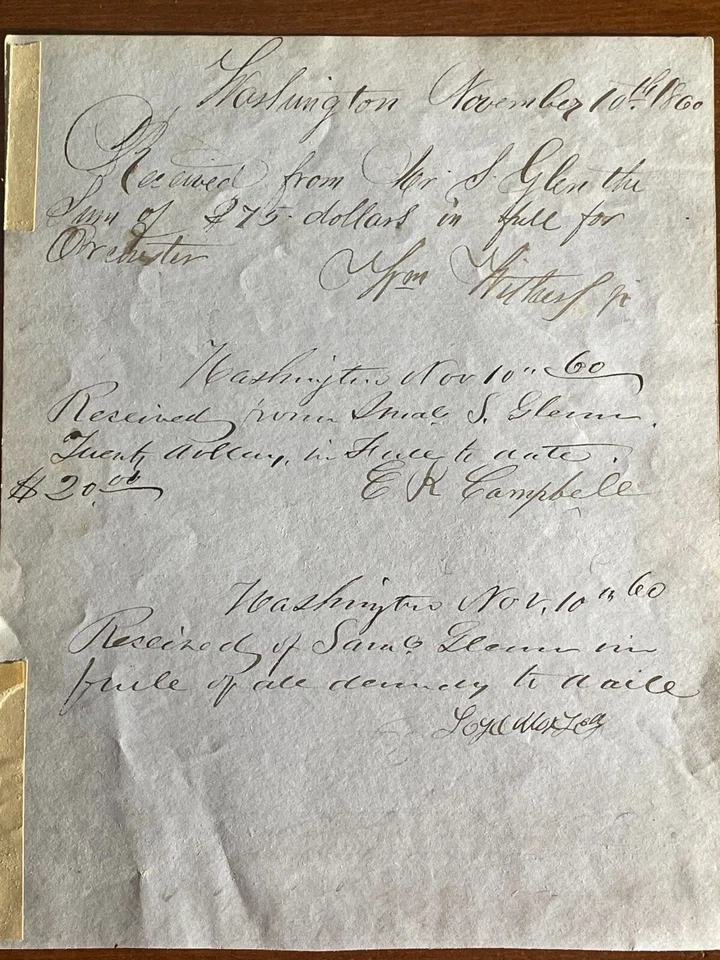 Washington November 10th. 1860
Received from Mr S. Glen the
Sum of $75 dollars in full for
Orchester
Wm Withers Jr
Washington Nov 10" 60
Received from S. Glenn.
Twenty dollars, in Full to date.
$20.00
E K Campbell
Washington Nov. 10th 60
Received of Saml Glenn in
fulle of all demands to daile
Loyd